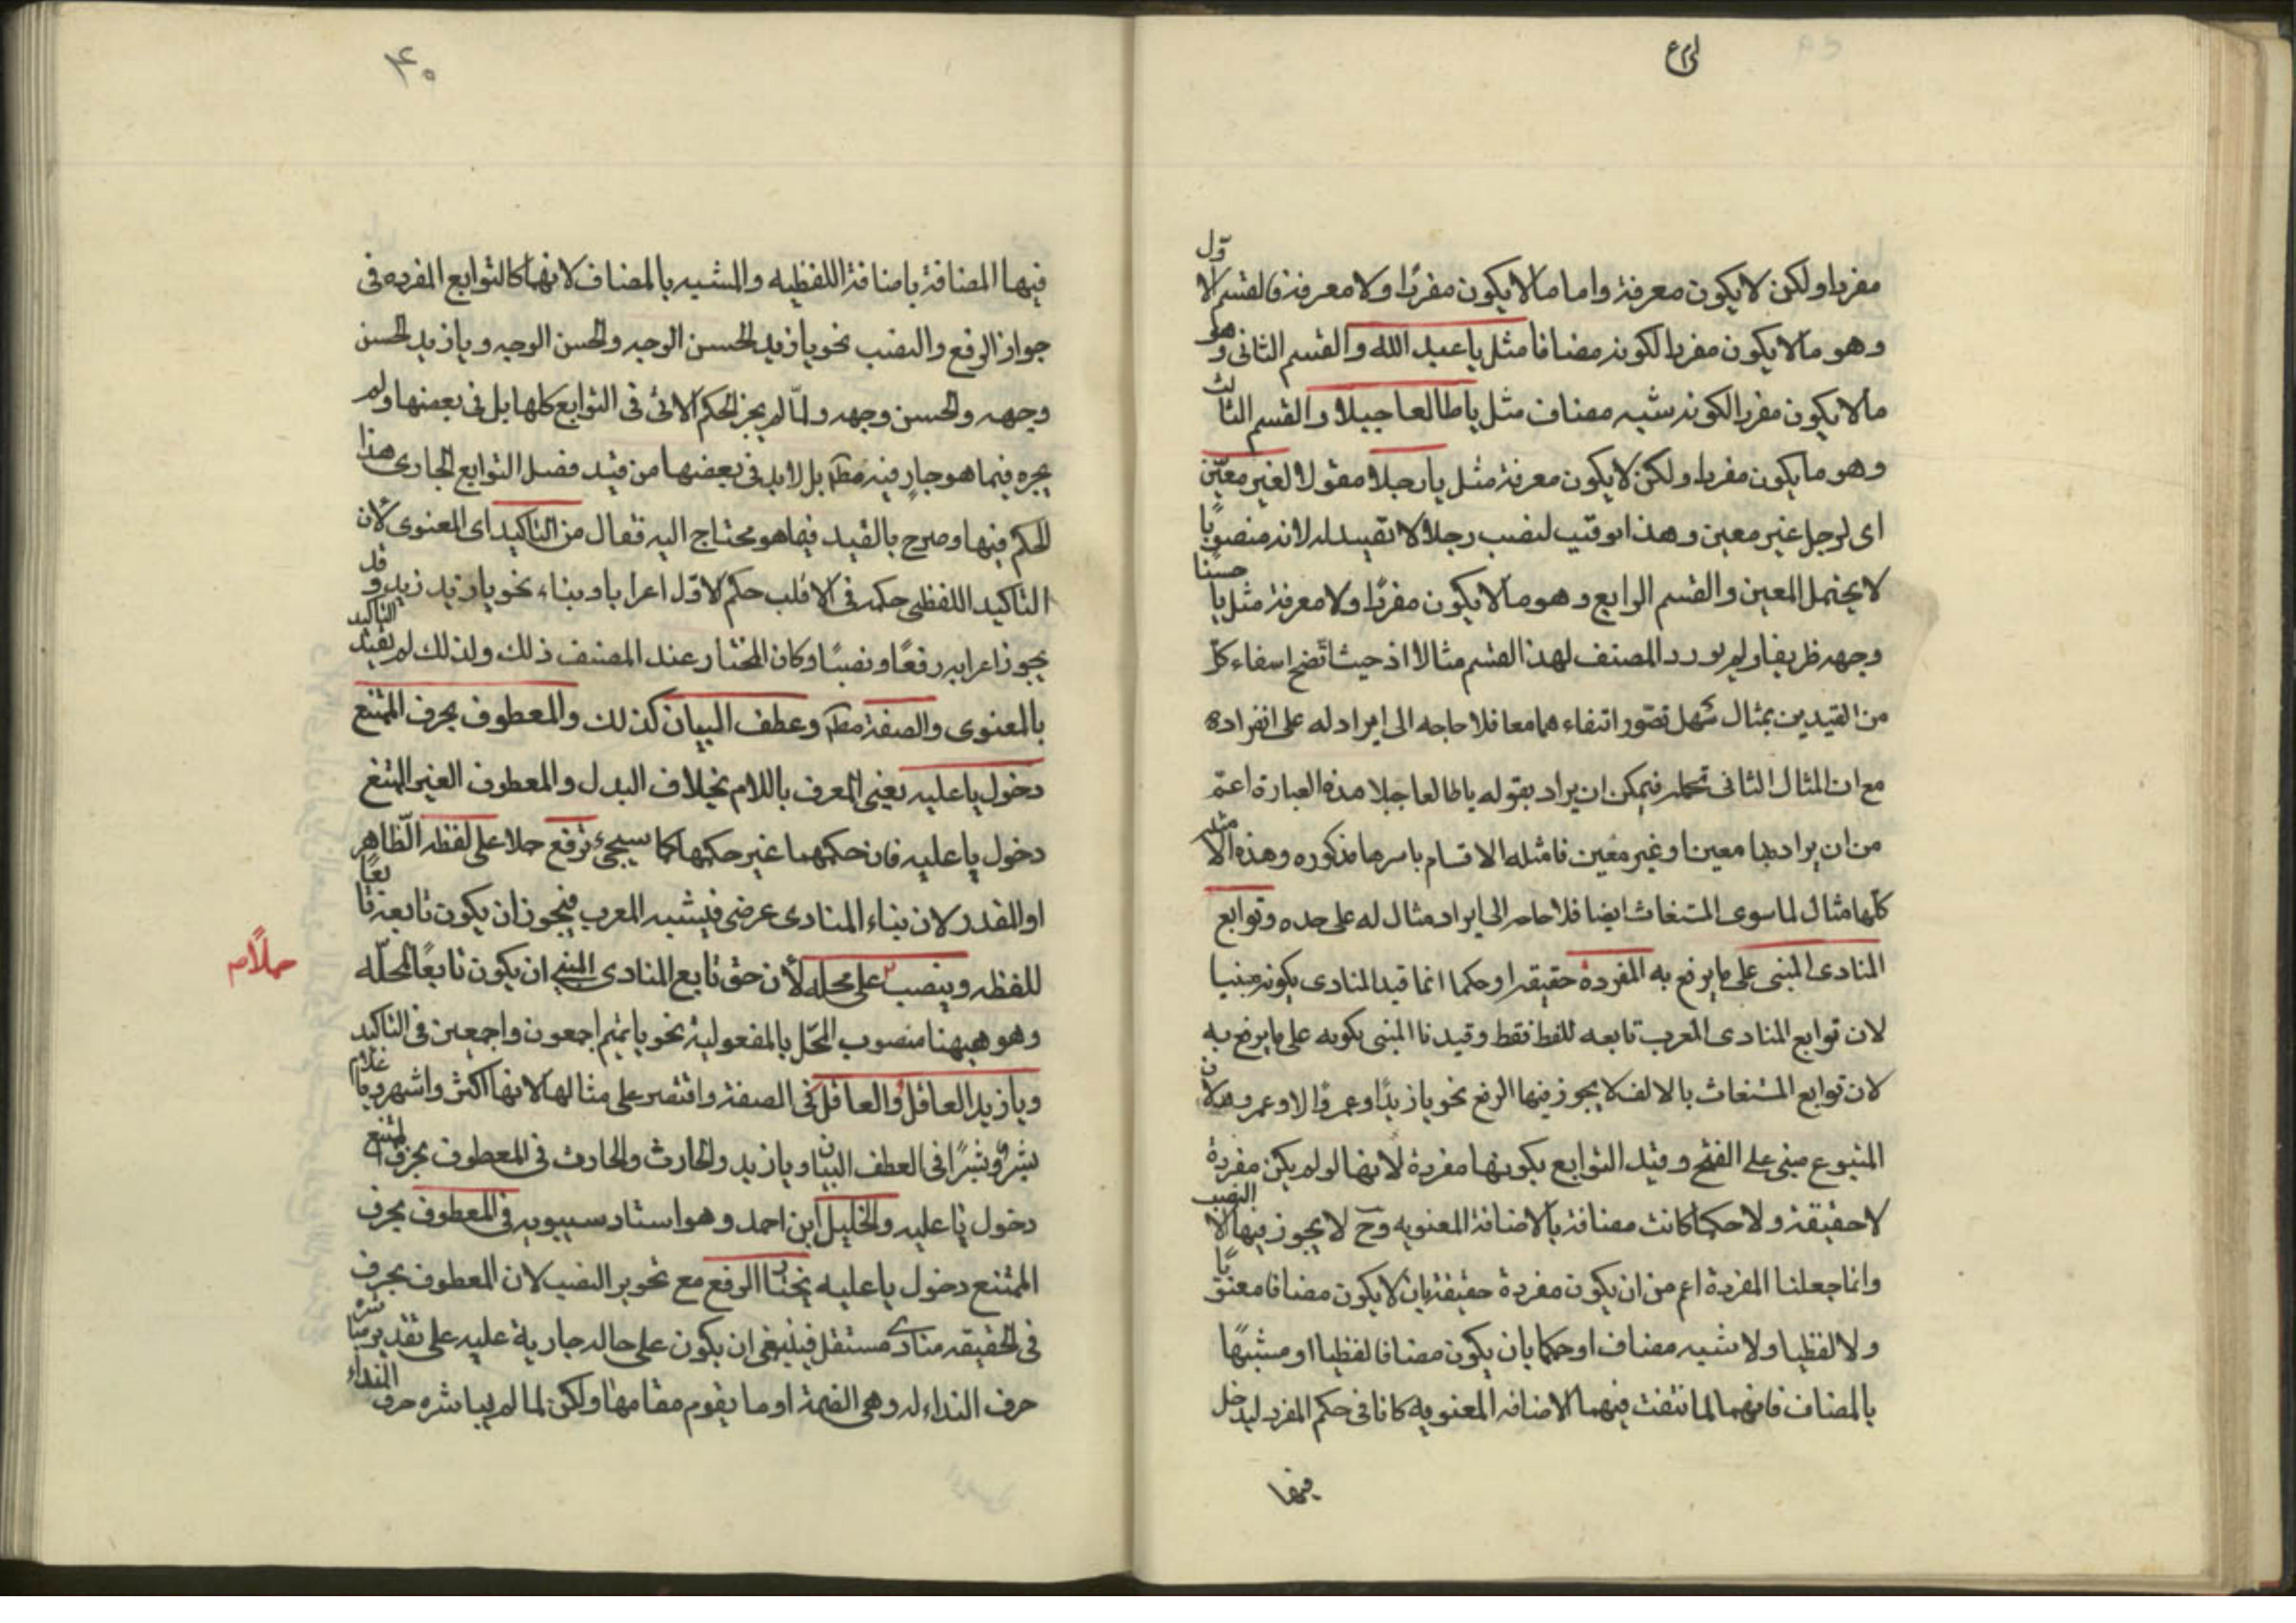 مفردا ولكن لا يكون معرفة واما ما لا يكون مفردًا ولا معرفة فالقسم الاول
وهو ما لا يكون مفردا لكونه مضافا مثل يا عبد الله والقسم الثانى وهو
ما لا يكون مفردا لكونه شبه مضاف مثل يا طالعا جبلا والقسم الثالث
وهو ما يكون مفردا ولكن لا يكون معرفة مثل يا رجلا مقولا لغير معيّن
اى لرجل غير معين وهذا توقيت لنصب رجلا لا تقييد له لانه منصوبًا
لا يحتمل المعين والقسم الرابع وهو ما لا يكون مفردًا ولا معرفة مثل يا حسنا
وجهه ظريفا ولم يورد المصنف لهذا القسم مثالا اذ حيث اتضح انتفاء كلّ
من القيدين بمثال سهل تصوّر انتفاء هما معا فلا حاجه الى ايراد له على انفراده
مع ان المثال الثانى تحمله فيمكن ان يراد بقوله يا طالعا جبلا هذه العبارة اعمّ
من ان يراد بها معينا او غير معين فامثله الاقسام باسرها مذكوره وهذه الامثله
كلّها مثال لما سوى المستغاث ايضا فلا حاجه الى ايراد مثال له على حده وتوابع
المنادى المبنى على ما يرفع به المفردة حقيقة او حكما انما قيد المنادى بكونه مبنيا
لان توابع المنادى المعرب تابعه للفظ فقط وقيدنا المبنى بكونه على ما يرفع به
لان توابع المستغاث بالالف لا يجوز فيها الرفع نحو يا زيدًا وعمرًا لا وعمرو لان
المتبوع مبنى على الفتح وقيد التوابع بكونها مفردة لانها لو لم يكن مفردة
لا حقيقة ولا حكما كانت مضافة بالاضافة المعنويه وح لا يجوز فيها الا النصب
وانما جعلنا المفردة اعم من ان يكون مفردة حقيقة بان لا يكون مضافا معنويًا
ولا لفظيا ولا شبه مضاف او حكما بان يكون مضافا لفظيا او مشبهًا
بالمضاف فانهما لما انتفت فيهما الاضافه المعنويه كانا فى حكم المفرد ليدخل
فيها
۴۰
فيها المضافة باضافة اللفظيه والمشبه بالمضاف لانها كالتوابع المفرده فى
جواز الرفع والنصب نحو يا زيد الحسن الوجه والحسن الوجه ويا زيد الحسن
وجهه والحسن وجهه ولمّا لم يجز الحكم الاتى فى التوابع كلها بل فى بعضها ولم
يجره فيما هو جارٍ فيه مطم بل لا بد فى بعضها من قيد فصل التوابع الجارى هذا
الحكم فيها وصرح بالقيد فيما هو محتاج اليه فقال من التاكيد اى المعنوى لان
التاكيد اللفظى حكمه فى الاغلب حكم الاول اعرابا وبناء نحو يا زيد زيد وقد
يجوز اعرابه رفعًا ونصبًا وكان المختار عند المصنف ذلك ولذلك لم يقيد التاكيد
بالمعنوى والصفة مطم وعطف البيان كذلك والمعطوف بحرف الممتنع
دخول يا عليه يعنى المعرف باللام بخلاف البدل والمعطوف الغير الممتنع
دخول يا عليه فان حكمهما غير حكمها كما سيجىء ترفع حملا على لفظه الظاهر
او المقدر لان بناء المنادى عرضى فيشبه المعرب فيجوز ان يكون تابعه تابعًا
للفظه وينصب على محله لأن حق تابع المنادى المبنى ان يكون تابعًا لمحلّه
حملًا صح
وهو ههنا منصوب المحّل بالمفعولية نحو يا تميم اجمعون واجمعين فى التاكيد
ويا زيد العاقلُ والعاقلَ فى الصفة واقتصر على مثالها لانها اكثر واشهر ويا غلام
بشرٌ وبشرًا فى العطف البيان ويا زيد والحارث والحارث فى المعطوف بحرف الممتنع
دخول يا عليه والخليل ابن احمد وهو استاد سيبويه فى المعطوف بحرف
الممتنع دخول يا عليه يختار الرفع مع تجويز النصب لان المعطوف بحرف
فى الحقيقه منادى مستقل فينبغى ان يكون على حاله جارية عليه على تقدير مباشرة
حرف النداء له وهى الضمة او ما يقوم مقامها ولكن لما لم يباشره حرف النداء